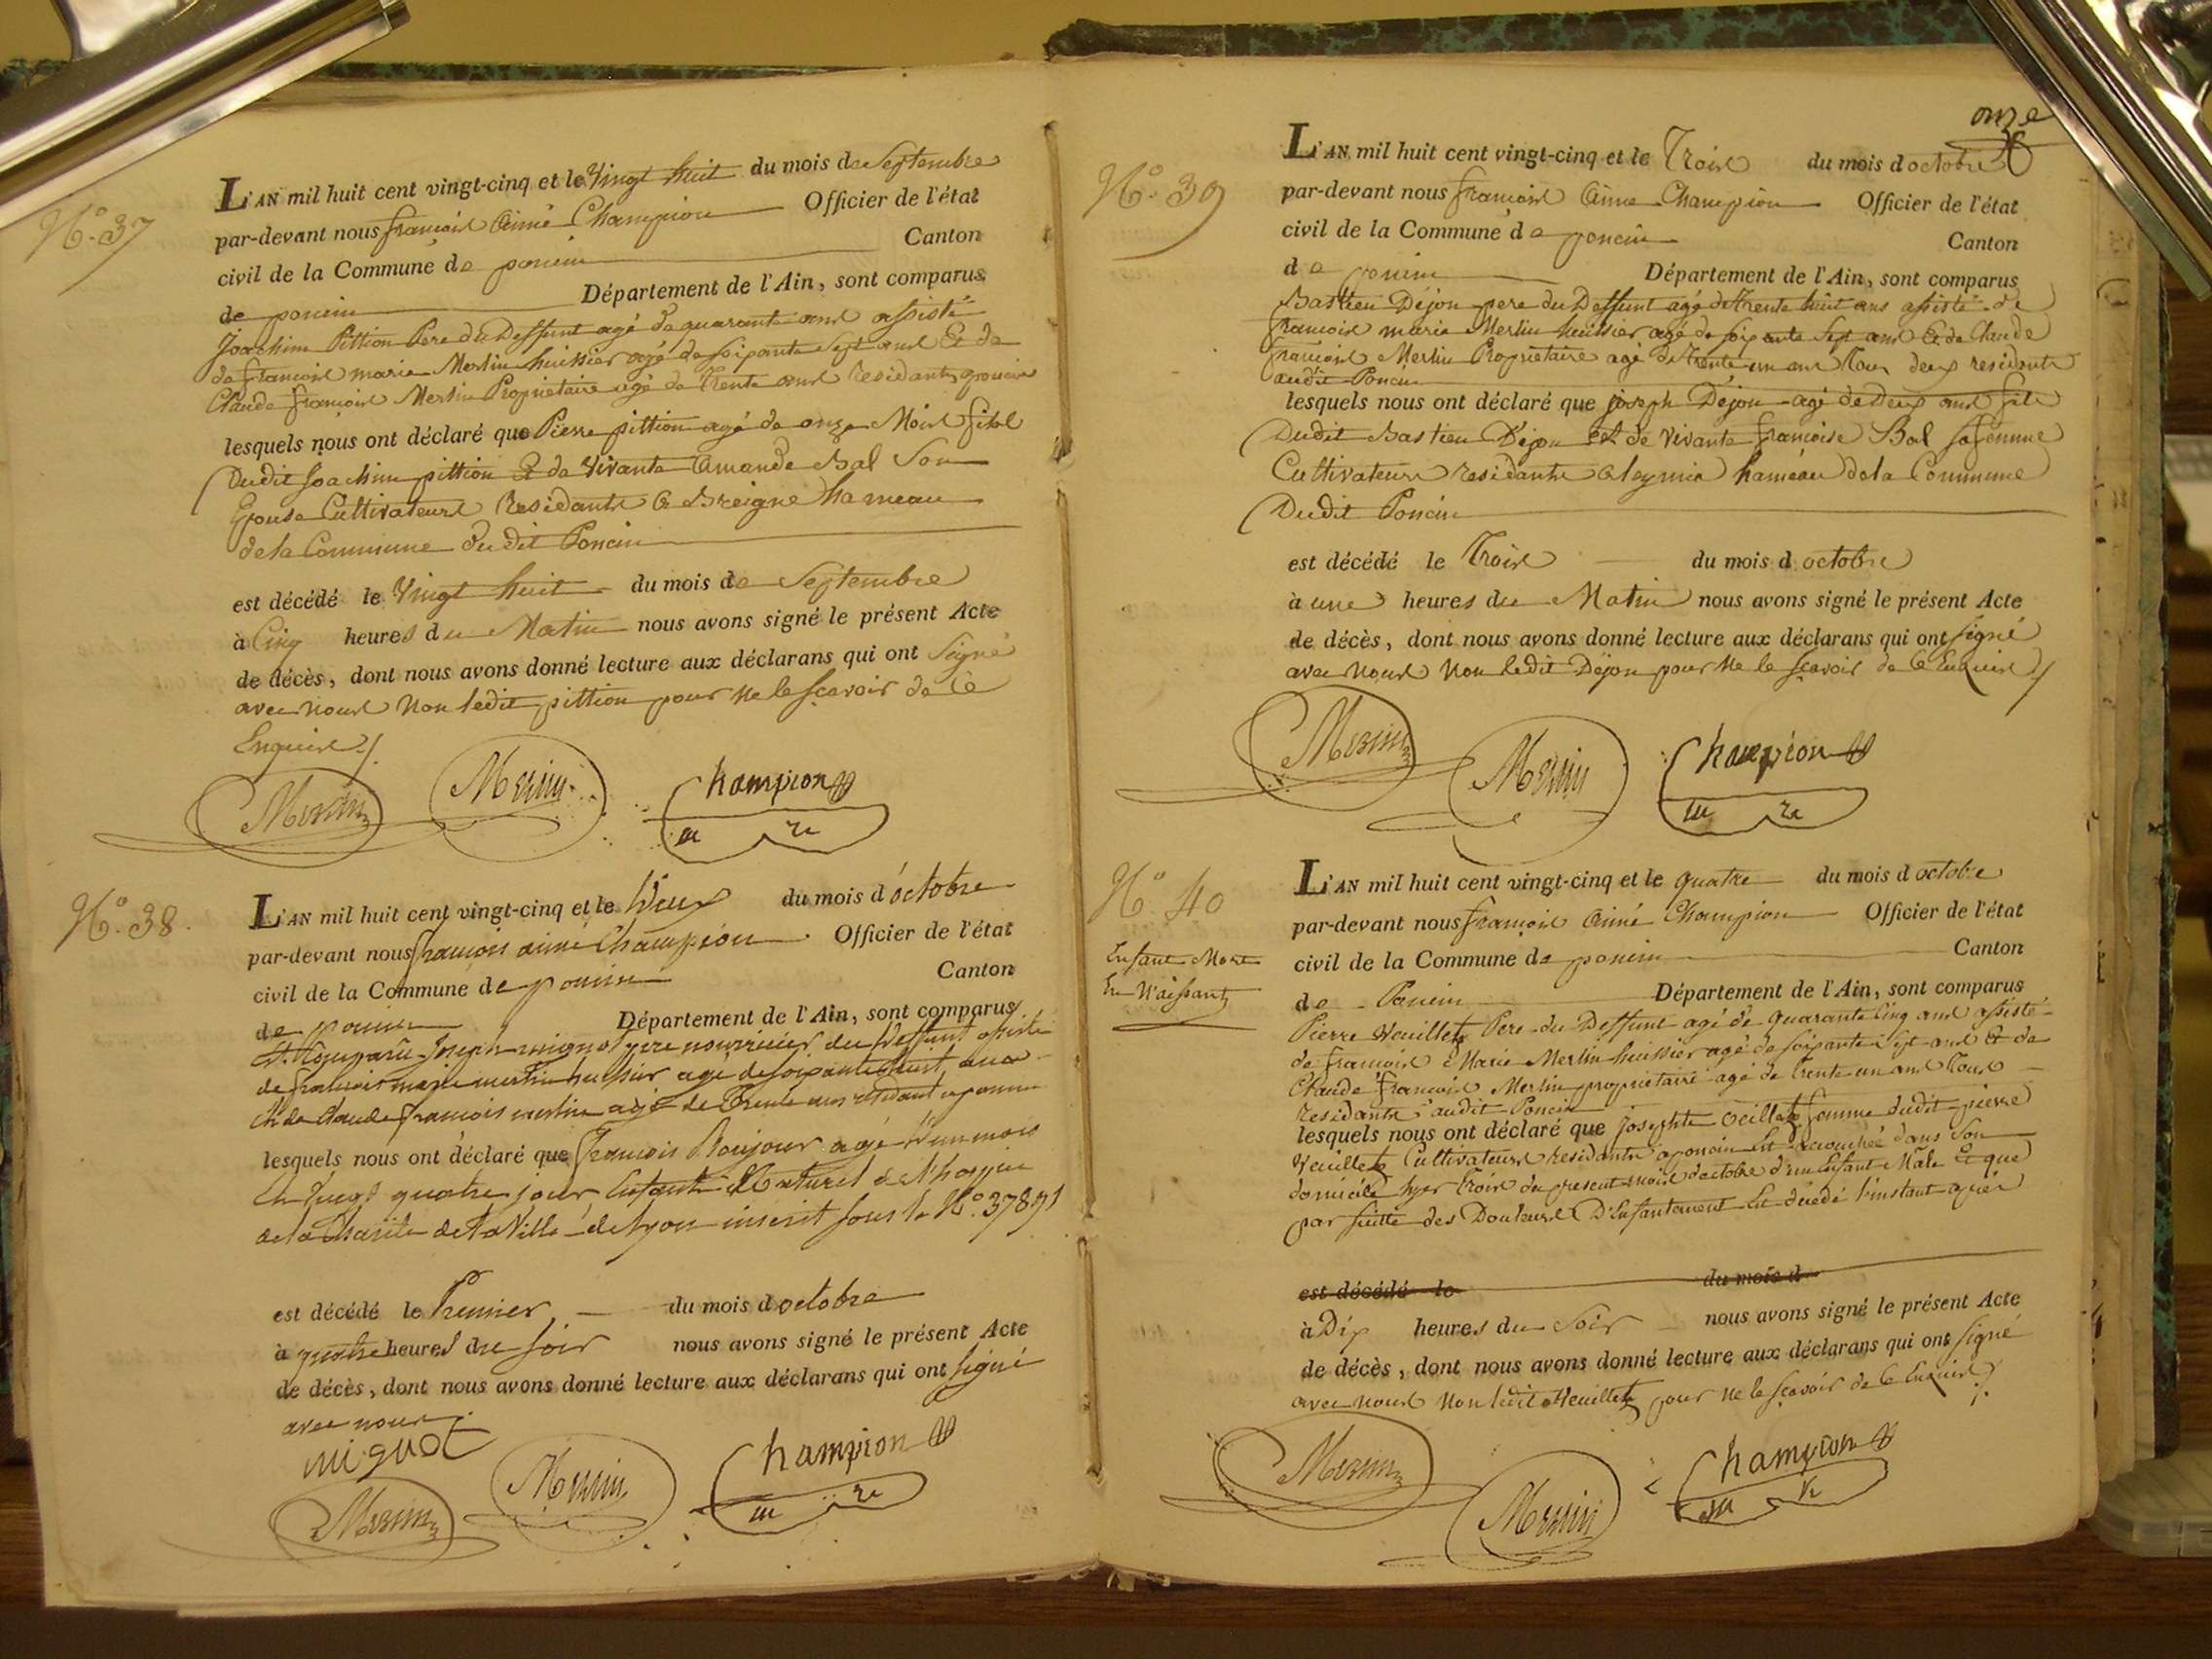 N.o 37
L'AN mil huit cent vingt-cinq et le Vingt huit du mois de Septembre
par-devant nous françois Aimé Champion Officier de l'état
civil de la Commune de poncin Canton
de poncin Département de l'Ain, sont comparus
Joachim Pittion Pere du Deffunt agé de quarante ans assisté
de françois marie Merlin huissier agé de soixante Sept ans Et de
Claude françois Merlin Proprietaire agé de Trente ans residants a poncin
lesquels nous ont déclaré que Pierre pittion agé de onze Mois fils
Dudit Joachim pittion Et de Vivante Amande Bal Son
Epouse Cultivateurs Residants a Breigne hameau
de la Commune du dit Poncin
est décédé le Vingt huit du mois de Septembre
à Cinq heures du Matin nous avons signé le présent Acte
de décès, dont nous avons donné lecture aux déclarans qui ont Signé
avec nous Non ledit pittion pour ne le sçavoir de Ce
Enquis
Merlin Merlin Champion
N.o 38.
L'AN mil huit cent vingt-cinq et le Deux du mois d'octobre
par-devant nous françois aimé Champion Officier de l'état
civil de la Commune de poncin Canton
de poncin Département de l'Ain, sont comparus
Joseph mignot pere nourricier du Deffunt assisté
de francois marie merlin huissier agé de soixante Sept ans
Et de Claude francois merlin agé de Trente ans residant a poncin
lesquels nous ont déclaré que francois Bonjour agé D'un mois
Et Vingt quatre jour Enfant Naturel de l'hospice
de la Charité de la Ville de lyon inscrit sous le N.o 37891
est décédé le Premier du mois d octobre
à quatre heures du soir nous avons signé le présent Acte
de décès, dont nous avons donné lecture aux déclarans qui ont signé
avec nous
mignot
Merlin Merlin Champion
onze
N.o 39
L'AN mil huit cent vingt-cinq et le Trois du mois d octobre
par-devant nous françois Aimé Champion Officier de l'état
civil de la Commune de poncin Canton
de poncin Département de l'Ain, sont comparus
Bastien Déjon pere du Deffunt agé de trente huit ans assisté de
françois marie Merlin huissier agé de soixante Sept ans Et de Claude
françois Merlin Proprietaire agé de trente un ans Tous deux residants
audit Poncin
lesquels nous ont déclaré que joseph Déjon agé de Deux ans fils
Dudit Bastien Déjon Et de Vivante françoise Bal sa femme
Cultivateurs residants a leymia hameau de la Commune
Dudit Poncin
est décédé le Trois du mois d octobre
à une heures du Matin nous avons signé le présent Acte
de décès, dont nous avons donné lecture aux déclarans qui ont signé
avec nous Non ledit Déjon pour ne le sçavoir de Ce Enquis
Merlin Merlin Champion
N.o 40
Enfant Mort
En Naissant
L'AN mil huit cent vingt-cinq et le quatre du mois d octobre
par-devant nous françois Aimé Champion Officier de l'état
civil de la Commune de poncin Canton
de Poncin Département de l'Ain, sont comparus
Pierre Veuillet Pere du Deffunt agé de quarante Cinq ans assisté
de françois Marie Merlin huissier agé de soixante Sept ans Et de
Claude françois Merlin proprietaire agé de trente un ans Tous
residants audit Poncin
lesquels nous ont déclaré que josephte femme dudit pierre
Veuillet Cultivateurs residants a poncin Est accouchée dans Son
domicile hyer Trois du present mois d'octobre d'un Enfant Mâle Et que
par suitte des Douleurs D'Enfantement Est décédé l'instant après
est décédé le du mois d
à Dix heures du Soir nous avons signé le présent Acte
de décès, dont nous avons donné lecture aux déclarans qui ont signé
avec nous Non ledit Veuillet pour ne le sçavoir de Ce Enquis
Merlin Merlin Champion